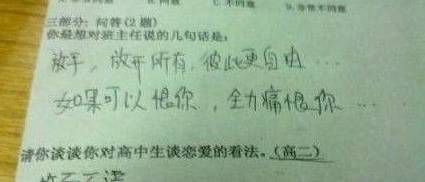 C. 不同意 D. 非常不同意
三部分: 问答(2题)
你最想对班主任说的几句话是:
放手,放开所有,彼此更自由…
如果可以恨你,全力痛恨你…
请你谈谈你对高中生谈恋爱的看法。(高二)